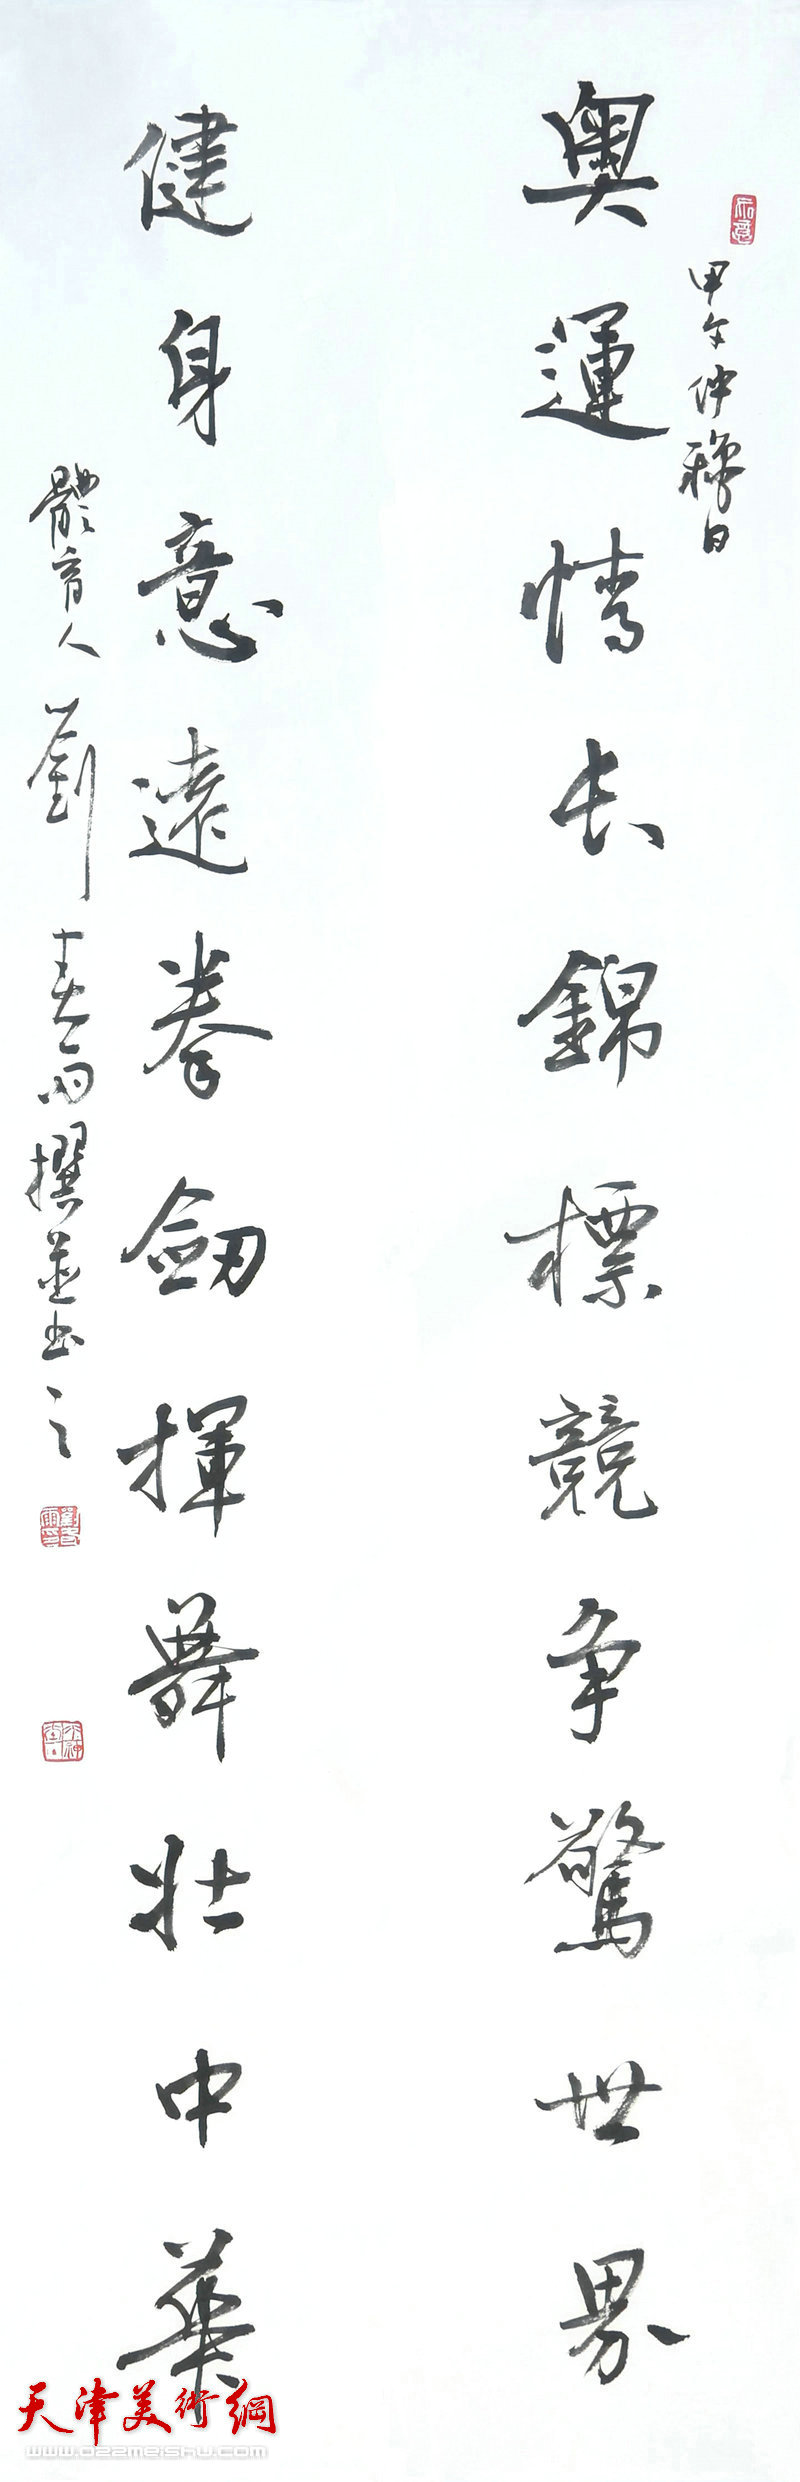 甲午仲穐日
奧運情长錦標競争驚世界
健身意遠拳劎揮舞壯中華
體育人劉春雨撰並书之
天津美術網
www.022meishu.com